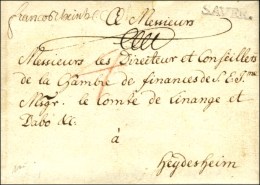 franco Rheinh.
S. AVOLD.
A Messieurs
Messieurs les Directeur et Conseillers
de la Chambre de finances de S. E. Sme
Msgr. le Comte de Linange et
Dabo &c.
à
Heydesheim